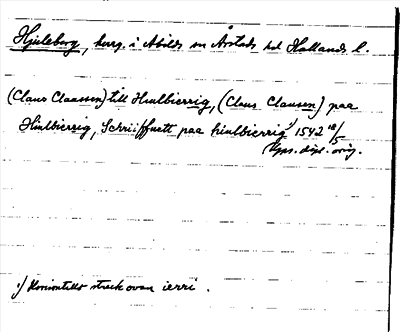 Hjuleberg, herrg. i Abilds sn Årstads hd Hallands l.
(Claus Claussen) till Hiulbierrig, (Claus Clausen) paa
Hiulbierrig, Schriiffuett paa hiulbierrig¹⁾ 1542 18/5
Kps. dipl. orig.
¹⁾ Horisontellt streck ovan ierri .